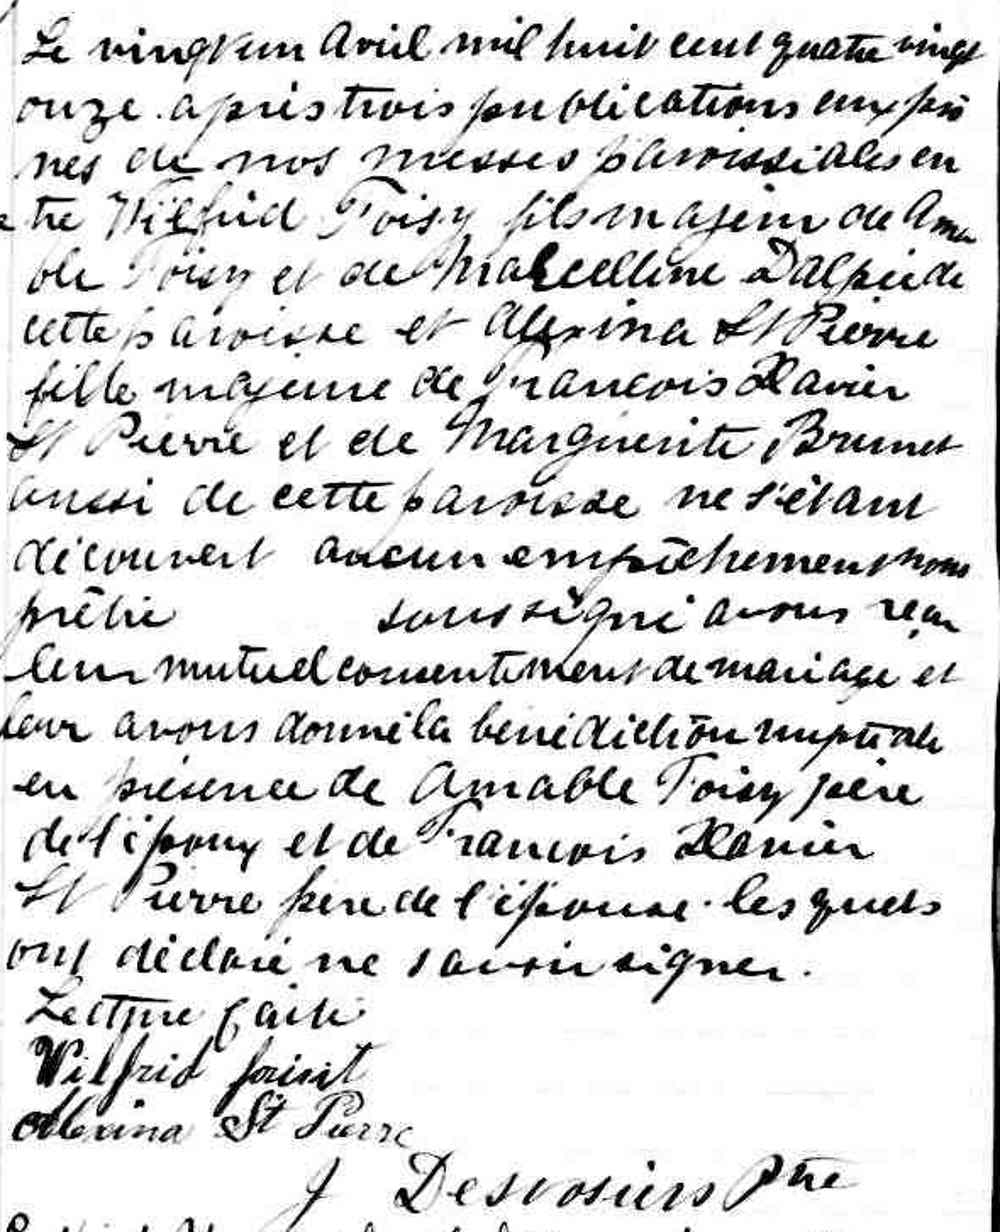 Le vingt et un Avril mil huit cent quatre vingt
onze après trois publications aux prô
nes de nos messes paroissiales en
tre Wilfrid Foisy fils majeur de Ama
ble Foisy et de Marcelline Dalpé de
cette paroisse et Alexina St Pierre
fille majeure de François Xavier
St Pierre et de Marguerite Brunet
aussi de cette paroisse ne s'étant
découvert aucun empêchement nous
prêtre soussigné avons reçu
leur mutuel consentement de mariage et
leur avons donné la bénédiction nuptiale
en présence de Amable Foisy père
de l'époux et de François Xavier
St Pierre père de l'épouse. les quels
ont déclaré ne savoir signer.
Lecture faite
Wilfrid
Alexina St Pierre
J Desrosiers Ptre